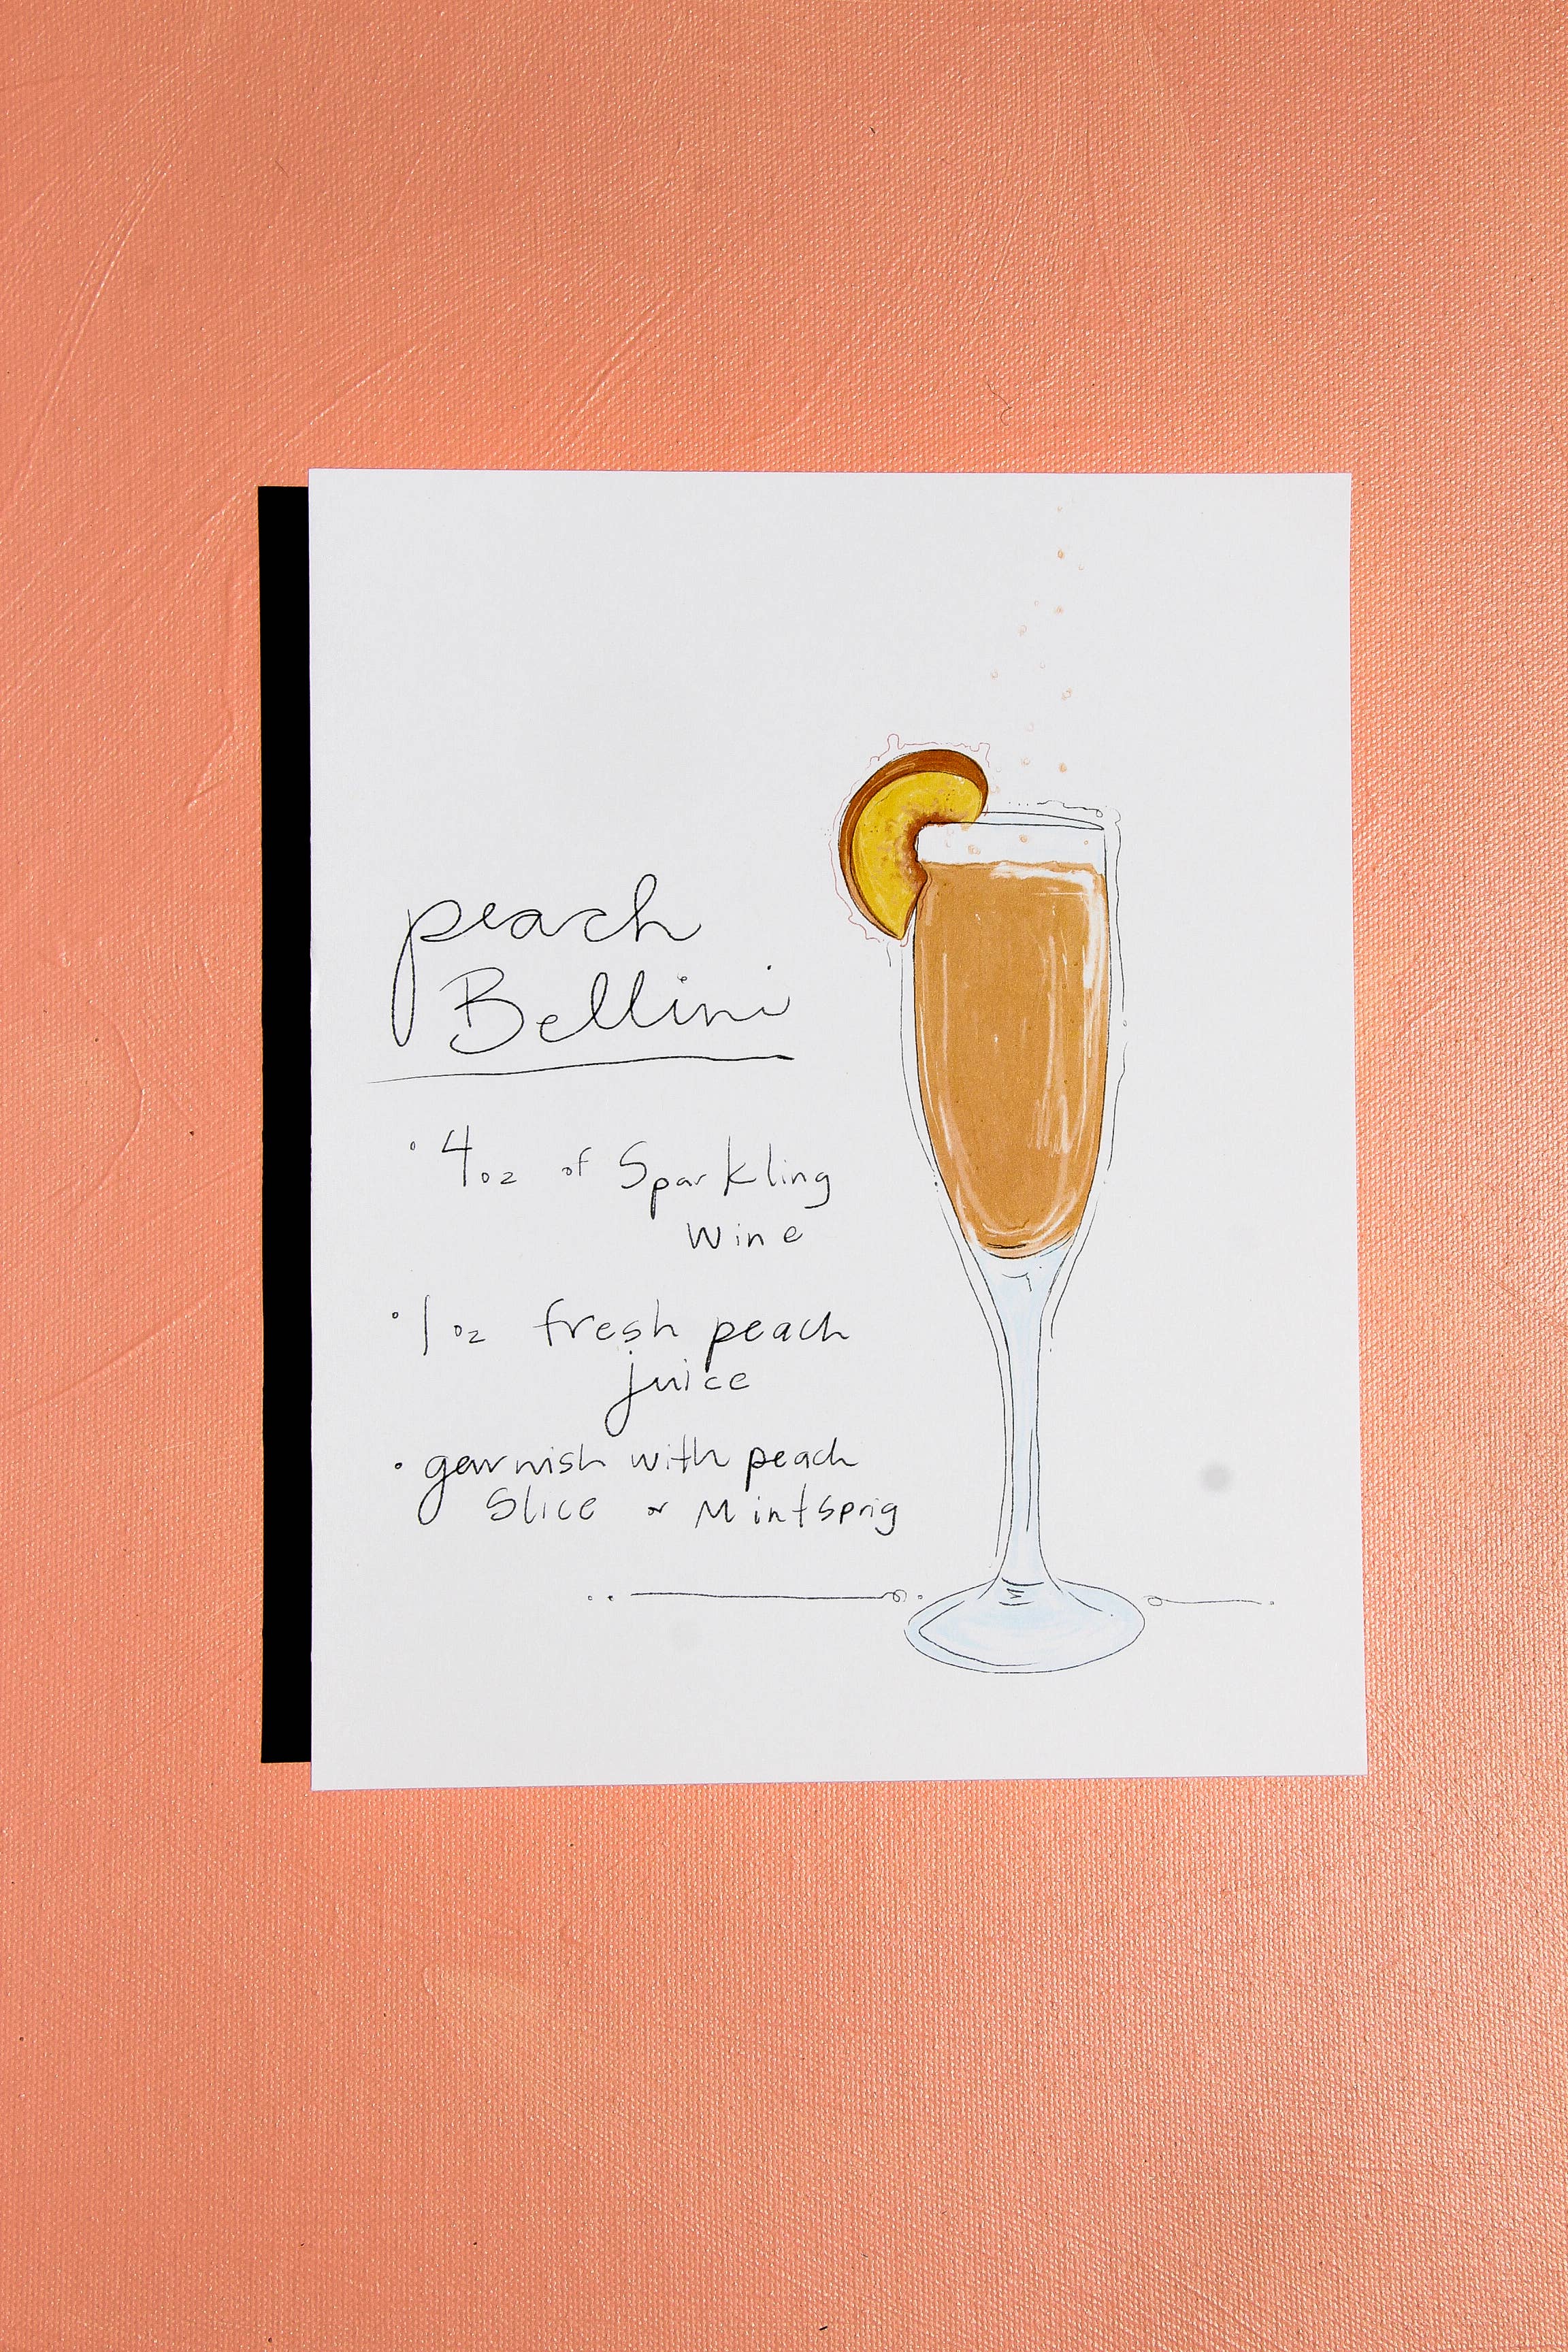 peach
Bellini
• 4oz of Sparkling
wine
• 1 oz fresh peach
juice
• garnish with peach
Slice or Mint sprig